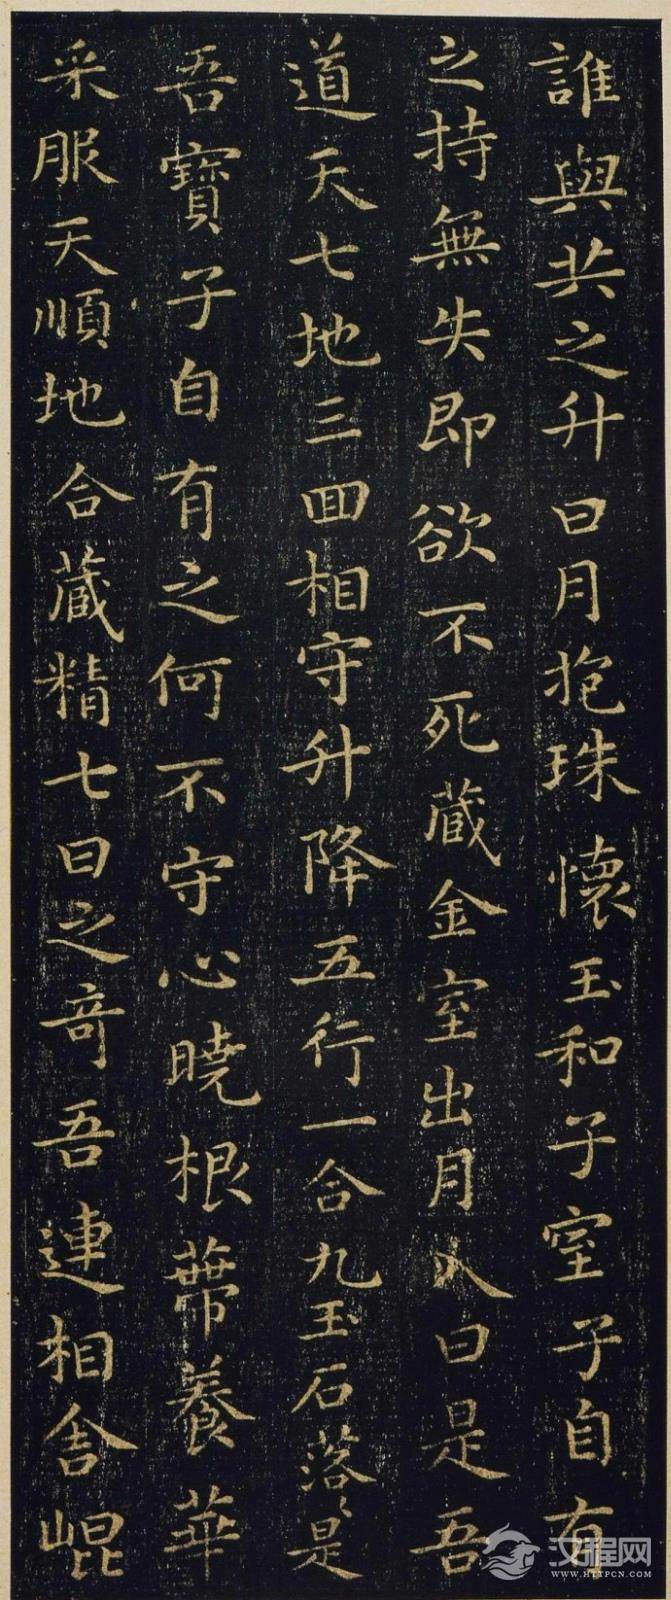 誰與共之升日月抱珠懷玉和子室子自有
之持無失即欲不死藏金室出月入日是吾
道天七地三回相守升降五行一合九玉石落〻是
吾寶子自有之何不守心曉根蔕養華
采服天順地合藏精七日之奇吾連相舍崐
汉程网
WWW.HTTPCN.COM